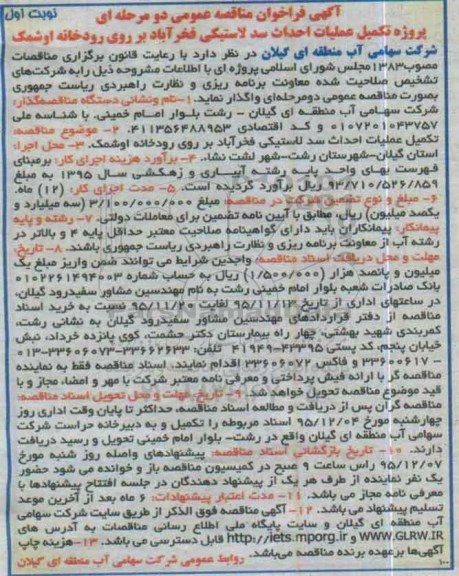 نوبت اول
آگهی فراخوان مناقصه عمومی دو مرحله ای
پروژه تکمیل عملیات احداث سد لاستیکی فخرآباد بر روی رودخانه اوشمک
شرکت سهامی آب منطقه ای گیلان در نظر دارد با رعایت قانون برگزاری مناقصات
مصوب۱۳۸۳مجلس شورای اسلامی پروژه ای با اطلاعات مشروحه ذیل رابه شرکت‌های
تشخیص صلاحیت شده معاونت برنامه ریزی و نظارت راهبردی ریاست جمهوری
بصورت مناقصه عمومی دومرحله‌ای واگذار نماید. ۱-نام ونشانی دستگاه مناقصه‌گذار:
شرکت سهامی آب منطقه ای گیلان - رشت بلوار امام خمینی. با شناسه ملی
۰۱۰۷۲۰۱۰۴۳۷۵۷ و کد اقتصادی ۴۱۱۳۵۶۴۸۸۹۵۳. ۲- موضوع مناقصه:
تکمیل عملیات احداث سد لاستیکی فخرآباد بر روی رودخانه اوشمک. ۳- محل اجرا:
استان گیلان-شهرستان رشت-شهر لشت نشاء. ۴-برآورد هزینه اجرای کار: برمبنای
فهرست بهای واحد پایه رشته آبیاری و زهکشی سال ۱۳۹۵ به مبلغ
۹۳/۷۱۰/۵۲۶/۸۵۹ ریال برآورد گردیده است. ۵- مدت اجرای کار: (۱۲) ماه.
۶- مبلغ و نوع تضمین شرکت در مناقصه: مبلغ ۳/۱۰۰/۰۰۰/۰۰۰ (سه میلیارد و
یکصد میلیون) ریال، مطابق با آیین نامه تضمین برای معاملات دولتی. ۷-رشته و پایه
پیمانکار: پیمانکاران باید دارای گواهینامه صلاحیت معتبر حداقل پایه ۴ و بالاتر در
رشته آب از معاونت برنامه ریزی و نظارت راهبردی ریاست جمهوری باشند. ۸- تاریخ،
مهلت و محل دریافت اسناد مناقصه: واجدین شرایط می توانند ضمن واریز مبلغ یک
میلیون و پانصد هزار (۱/۵۰۰/۰۰۰) ریال به حساب شماره ۰۱۰۲۲۶۱۴۹۴۰۰۳
بانک صادرات شعبه بلوار امام خمینی رشت به نام مهندسین مشاور سفیدرود گیلان،
در ساعتهای اداری از تاریخ ۹۵/۱۱/۱۶ لغایت ۹۵/۱۱/۲۰ نسبت به خرید اسناد
مناقصه از دفتر قراردادهای مهندسین مشاور سفیدرود گیلان به نشانی رشت،
کمربندی شهید بهشتی، چهار راه بیمارستان دکتر حشمت، کوی پانزده خرداد، نبش
خیابان پنجم، کد پستی ۴۲۳۹۵-۴۱۹۴۹ تلفن: ۳۳۶۶۲۶۳۳-۳۳۶۰۶۰۷۳-۰۱۳
- ۳۳۶۰۰۶۱۷ و فاکس ۳۳۶۰۶۰۷۲ اقدام نمایند. اسناد مناقصه فقط به نماینده
مناقصه گر با ارائه فیش پرداختی و معرفی نامه معتبر شرکت با مهر و امضاء مجاز و با
قید موضوع مناقصه تحویل خواهد شد. ۹- تاریخ، مهلت و محل تحویل اسناد مناقصه:
مناقصه گران پس از دریافت و مطالعه اسناد مناقصه، حداکثر تا پایان وقت اداری روز
چهارشنبه مورخ ۹۵/۱۲/۰۴ اسناد مربوطه را تکمیل و به دبیرخانه حراست شرکت
سهامی آب منطقه ای گیلان واقع در رشت- بلوار امام خمینی تحویل و رسید دریافت
دارند. ۱۰- تاریخ بازگشائی اسناد مناقصه: پیشنهادهای واصله روز شنبه مورخ
۹۵/۱۲/۰۷ راس ساعت ۹ صبح در کمیسیون مناقصه باز و خوانده می شود حضور
یک نفر نماینده از طرف هر یک از پیشنهاد دهندگان در جلسه افتتاح پیشنهادها با
معرفی نامه مجاز می باشد. ۱۱- مدت اعتبار پیشنهادات: ۶ ماه بعد از آخرین موعد
تسلیم پیشنهاد می باشد. ۱۲- آگهی مناقصه فوق الذکر از طریق سایت شرکت سهامی
آب منطقه ای گیلان و سایت پایگاه ملی اطلاع رسانی مناقصات به آدرس های
WWW.GLRW.IR و http://iets.mporg.ir قابل دسترسی می باشد. ۱۳-هزینه چاپ
آگهی‌ها برعهده برنده مناقصه می‌باشد.
روابط عمومی شرکت سهامی آب منطقه ای گیلان